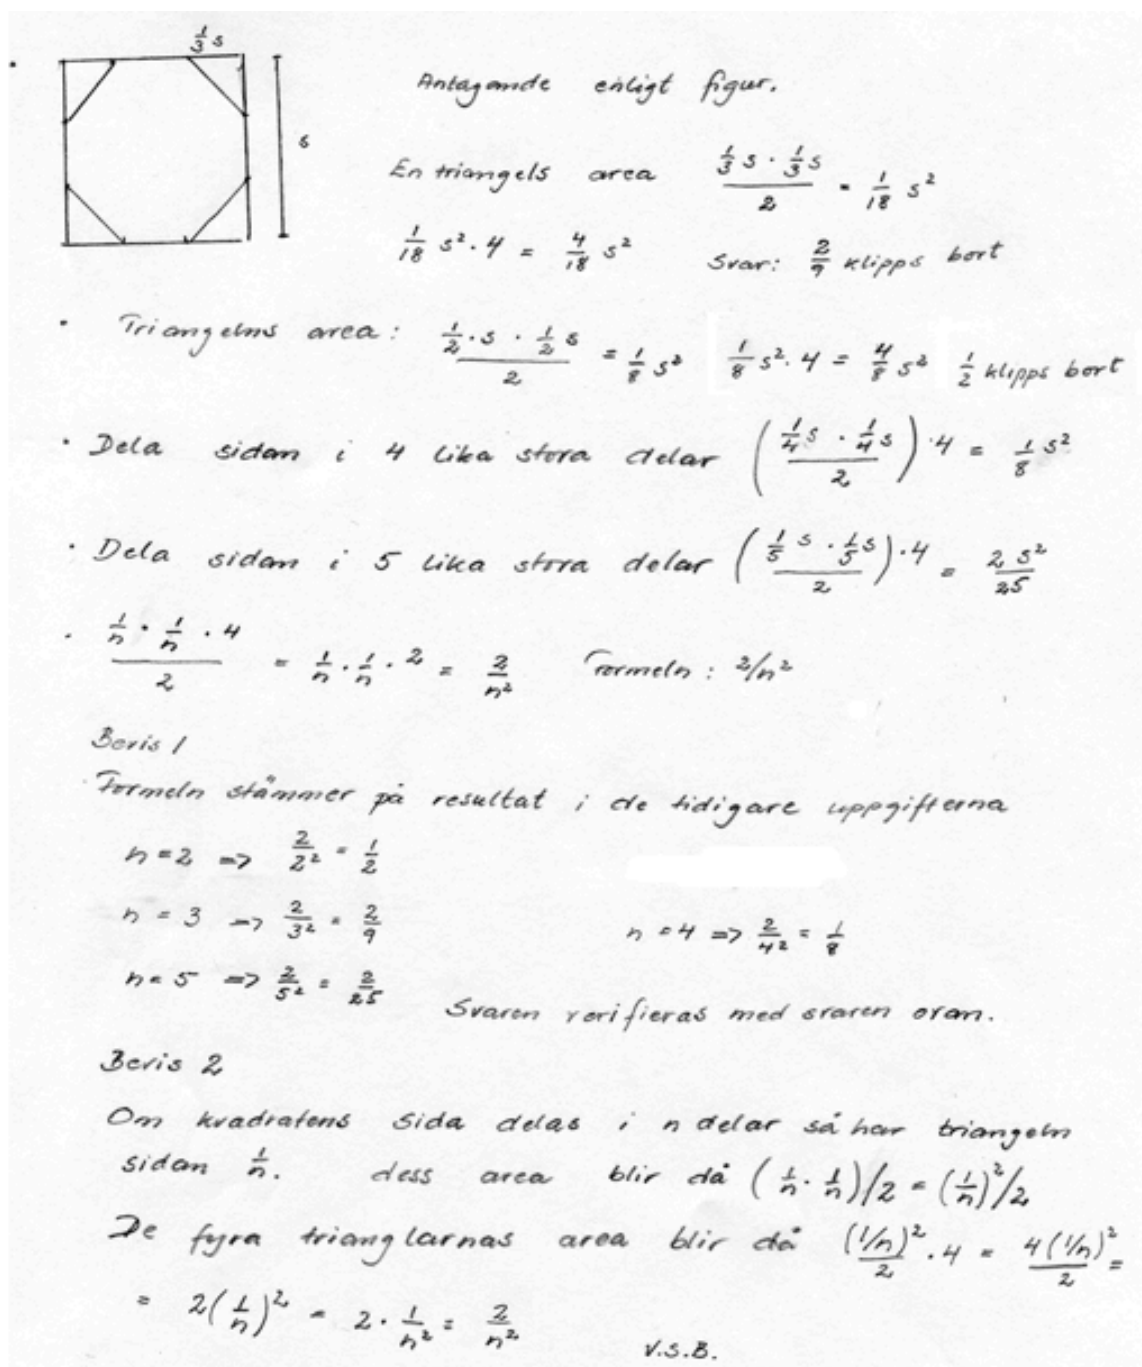 1/3 s
s
Antagande enligt figur.
En triangels area (1/3 s · 1/3 s)/2 = 1/18 s²
1/18 s² · 4 = 4/18 s² Svar: 2/9 klipps bort
· Triangelns area: (1/2 · s · 1/2 s)/2 = 1/8 s² 1/8 s² · 4 = 4/8 s² 1/2 klipps bort
· Dela sidan i 4 lika stora delar ((1/4 s · 1/4 s)/2) · 4 = 1/8 s²
· Dela sidan i 5 lika stora delar ((1/5 s · 1/5 s)/2) · 4 = 2 s²/25
· (1/n · 1/n · 4)/2 = 1/n · 1/n · 2 = 2/n² Formeln: 2/n²
Bevis 1
Formeln stämmer på resultat i de tidigare uppgifterna
n = 2 => 2/2² = 1/2
n = 3 => 2/3² = 2/9 n = 4 => 2/4² = 1/8
n = 5 => 2/5² = 2/25
Svaren verifieras med svaren ovan.
Bevis 2
Om kvadratens sida delas i n delar så har triangeln
sidan 1/n. dess area blir då (1/n · 1/n)/2 = (1/n)²/2
De fyra trianglarnas area blir då (1/n)²/2 · 4 = 4(1/n)²/2 =
= 2(1/n)² = 2 · 1/n² = 2/n²
V.S.B.